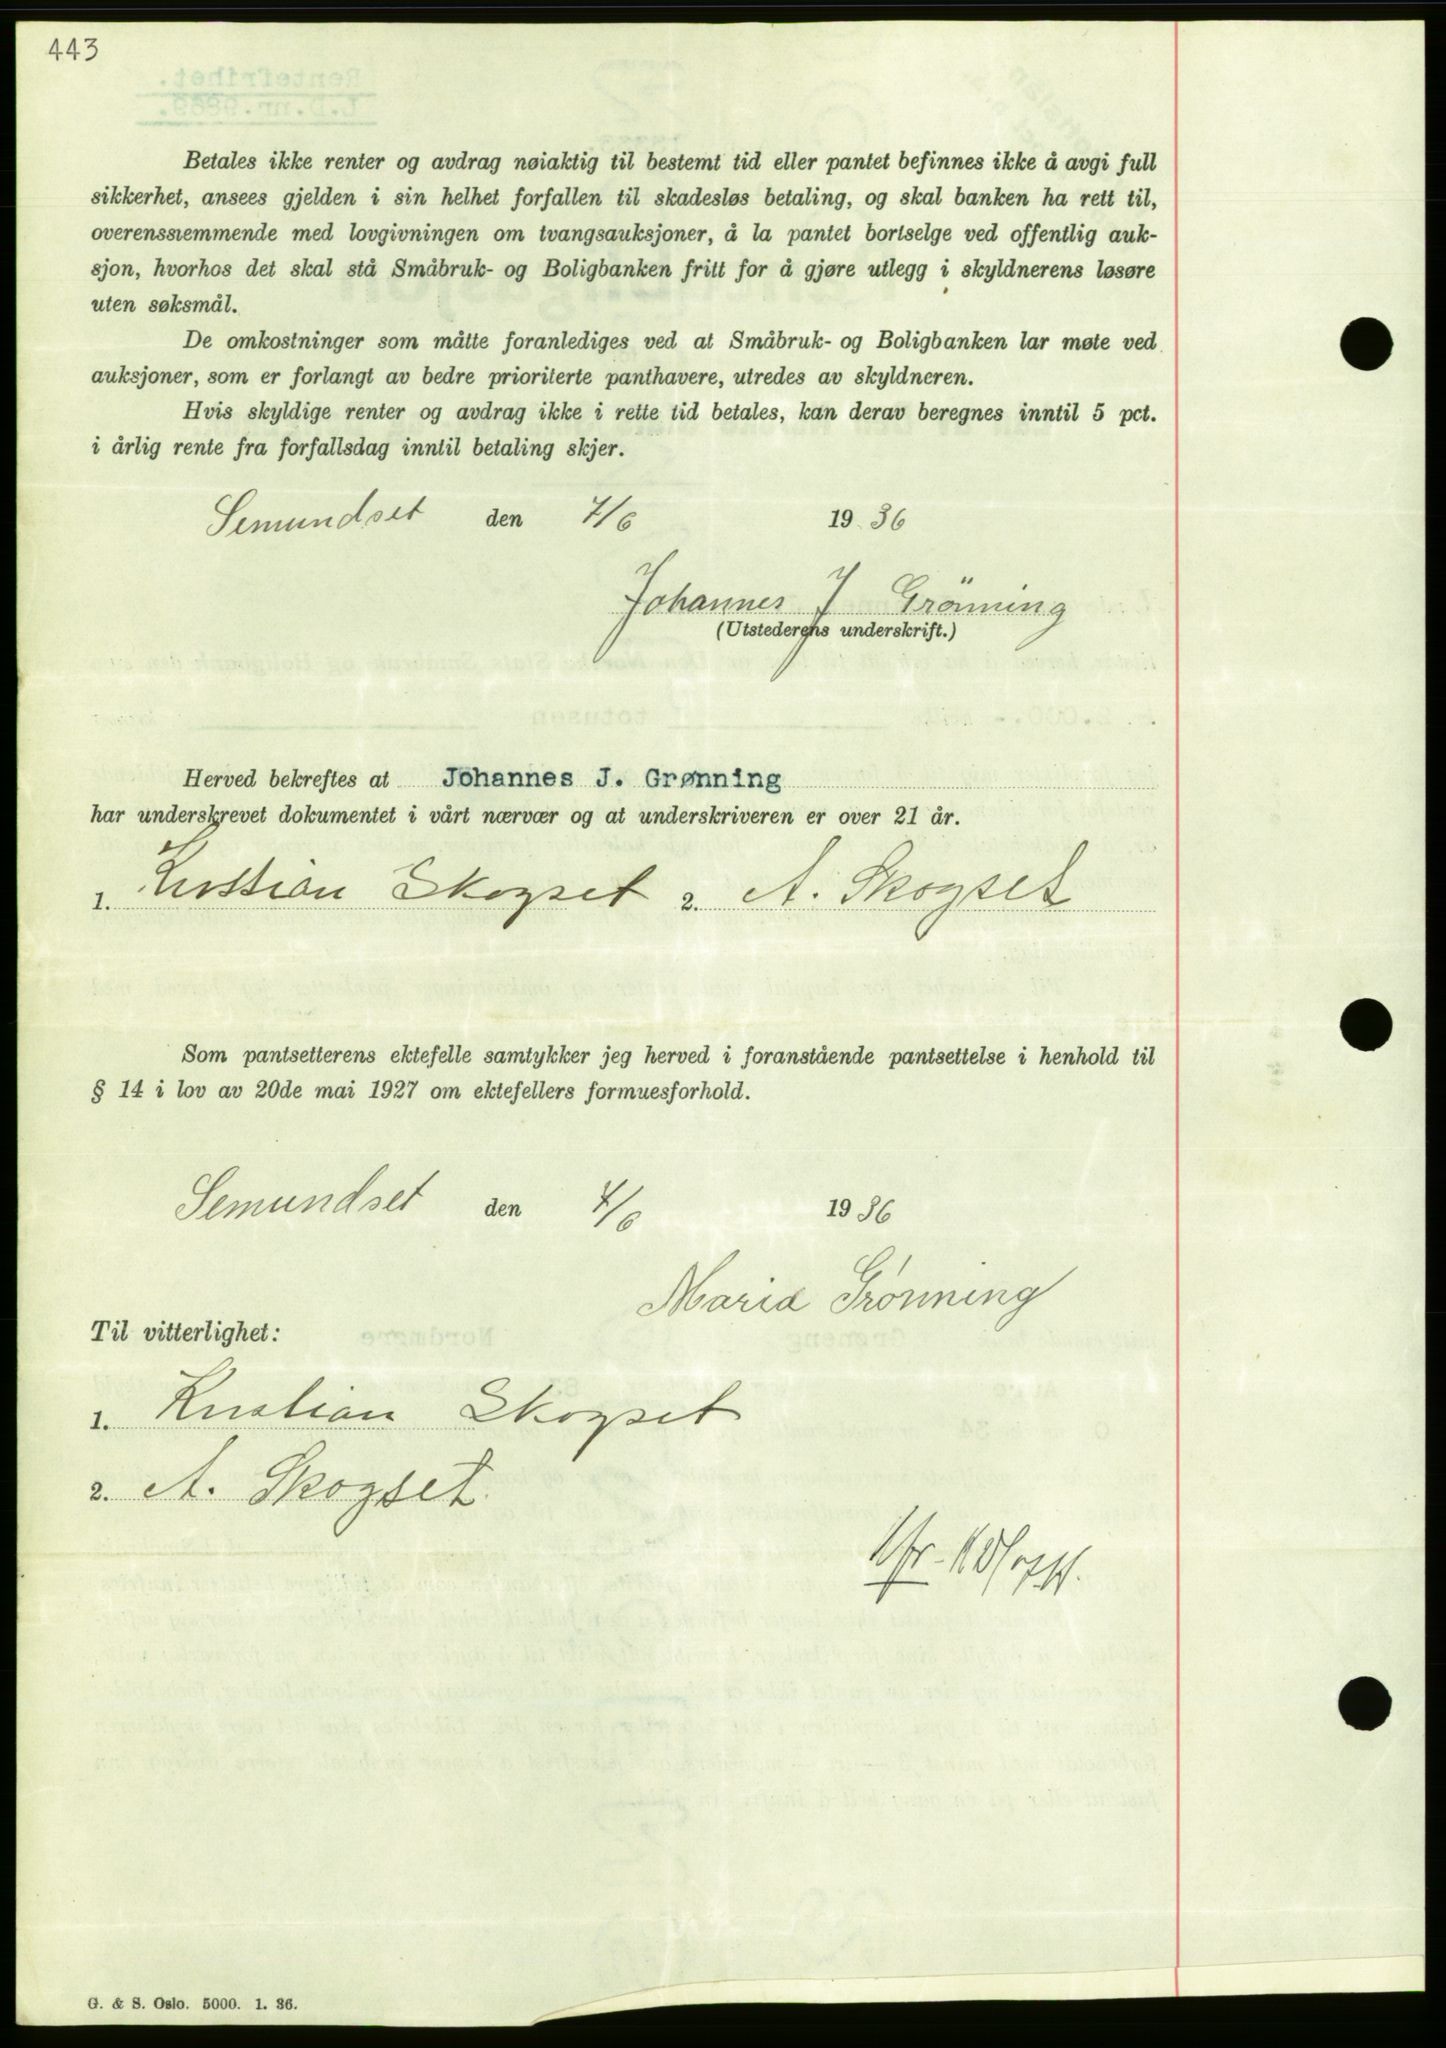 443
Betales ikke renter og avdrag nøiaktig til bestemt tid eller pantet befinnes ikke å avgi full
sikkerhet, ansees gjelden i sin helhet forfallen til skadesløs betaling, og skal banken ha rett til,
overensstemmende med lovgivningen om tvangsauksjoner, å la pantet bortselge ved offentlig auk-
sjon, hvorhos det skal stå Småbruk- og Boligbanken fritt for å gjøre utlegg i skyldnerens løsøre
uten søksmål.
De omkostninger som måtte foranlediges ved at Småbruk- og Boligbanken lar møte ved
auksjoner, som er forlangt av bedre prioriterte panthavere, utredes av skyldneren.
Hvis skyldige renter og avdrag ikke i rette tid betales, kan derav beregnes inntil 5 pct.
i årlig rente fra forfallsdag inntil betaling skjer.
Semundset den 7/6 1936
Johannes J Grönning
(Utstederens underskrift.)
Herved bekreftes at Johannes J. Grønning
har underskrevet dokumentet i vårt nærvær og at underskriveren er over 21 år.
1. Kristian Skogset 2. A. Skogset
Som pantsetterens ektefelle samtykker jeg herved i foranstående pantsettelse i henhold til
§ 14 i lov av 20de mai 1927 om ektefellers formuesforhold.
Semundset den 7/6 1936
Maria Grönning
Til vitterlighet:
1. Kristian Skogset
2. A. Skogset
G. & S. Oslo. 5000. 1. 36.